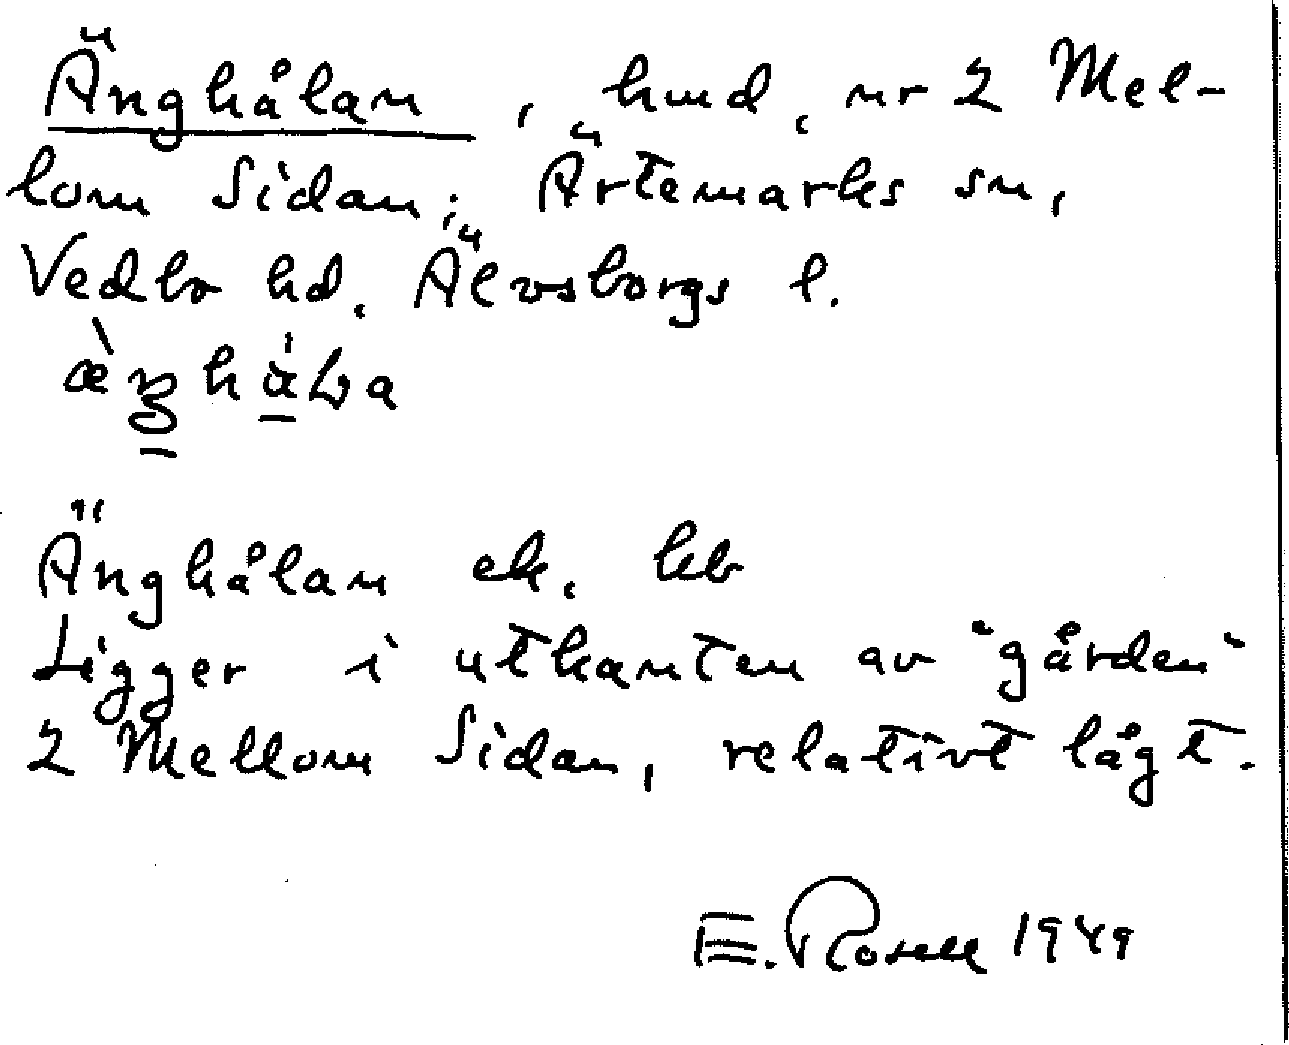 Änghålan, hmd, nr 2 Mel-
lom Sidan; Ärtemarks sn,
Vedbo hd. Älvsborgs l.
Änghålan ek. kb
Ligger i utkanten av "gården"
2 Mellom Sidan, relativt lågt.
E. Rosell 1949